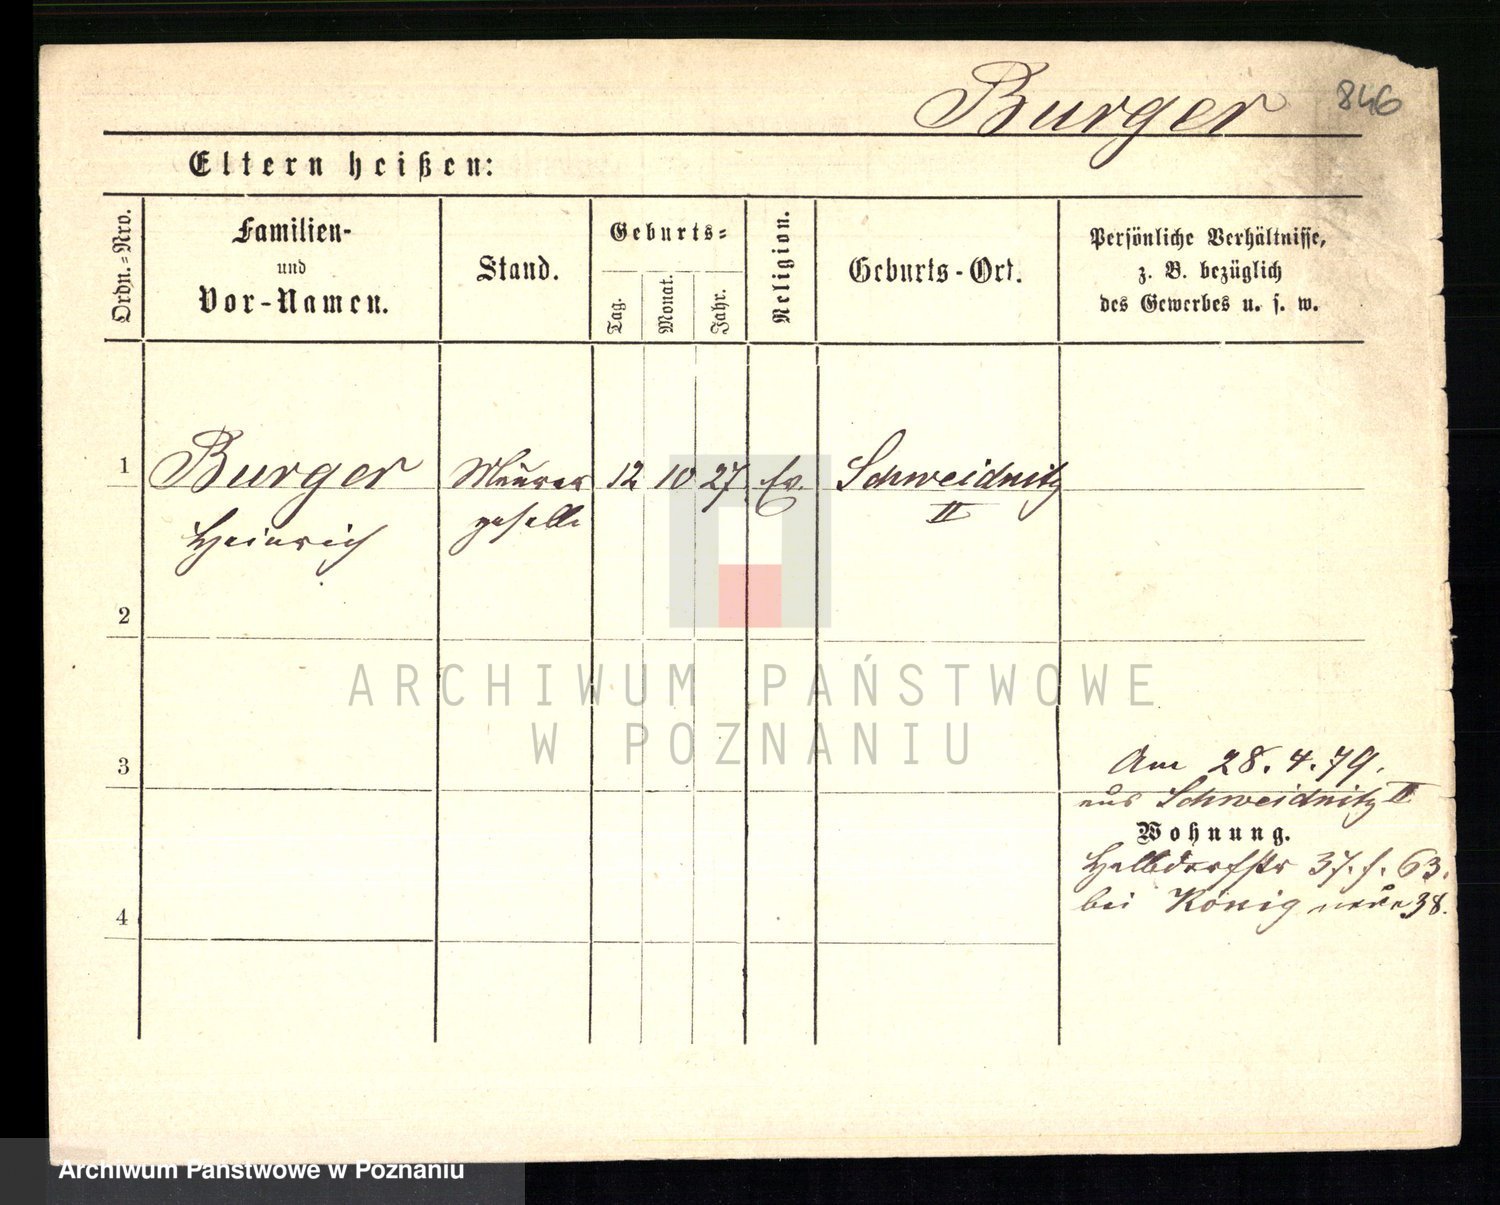 Burger 846
Eltern heißen:
Ordn.-Nro.
Familien-
und
Vor-Namen.
Stand.
Geburts-
Tag.
Monat.
Jahr.
Religion.
Geburts-Ort.
Persönliche Verhältnisse,
z. B. bezüglich
des Gewerbes u. s. w.
1 Burger Maurer 12 10 27 Ev. Schweidnitz
Heinrich geselle II
2
ARCHIWUM PAŃSTWOWE
W POZNANIU
3
Am 28.4.79.
aus Schweidnitz II
Wohnung.
Halbdorfstr 37. f. 63.
4
bei König 38.
Archiwum Państwowe w Poznaniu